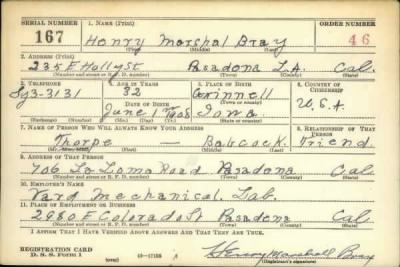 SERIAL NUMBER 1. NAME (Print) ORDER NUMBER
167 Henry Marshal Bray 46
(First) (Middle) (Last)
2. ADDRESS (Print)
235 E Holly St Pasadena L.A. Cal.
(Number and street or R. F. D. number) (Town) (County) (State)
3. TELEPHONE 4. AGE IN YEARS 5. PLACE OF BIRTH 6. COUNTRY OF CITIZENSHIP
Sy3-3131 32 Grinnell
DATE OF BIRTH (Town or county) U.S.A.
June 1 1908 Iowa
(Mo.) (Day) (Yr.) (State or country)
7. NAME OF PERSON WHO WILL ALWAYS KNOW YOUR ADDRESS 8. RELATIONSHIP OF THAT PERSON
Thorpe — Babcock. Friend
(First) (Middle) (Last)
9. ADDRESS OF THAT PERSON
706 La Loma Road Pasadena Cal
(Number and street or R. F. D. number) (Town) (County) (State)
10. EMPLOYER'S NAME
Vard Mechanical. Lab.
11. PLACE OF EMPLOYMENT OR BUSINESS
2980 E Colorado St Pasadena Cal
(Number and street or R. F. D. number) (Town) (County) (State)
I AFFIRM THAT I HAVE VERIFIED ABOVE ANSWERS AND THAT THEY ARE TRUE.
REGISTRATION CARD
D. S. S. Form 1 Henry Marshall Bray
(over) (Registrant's signature)